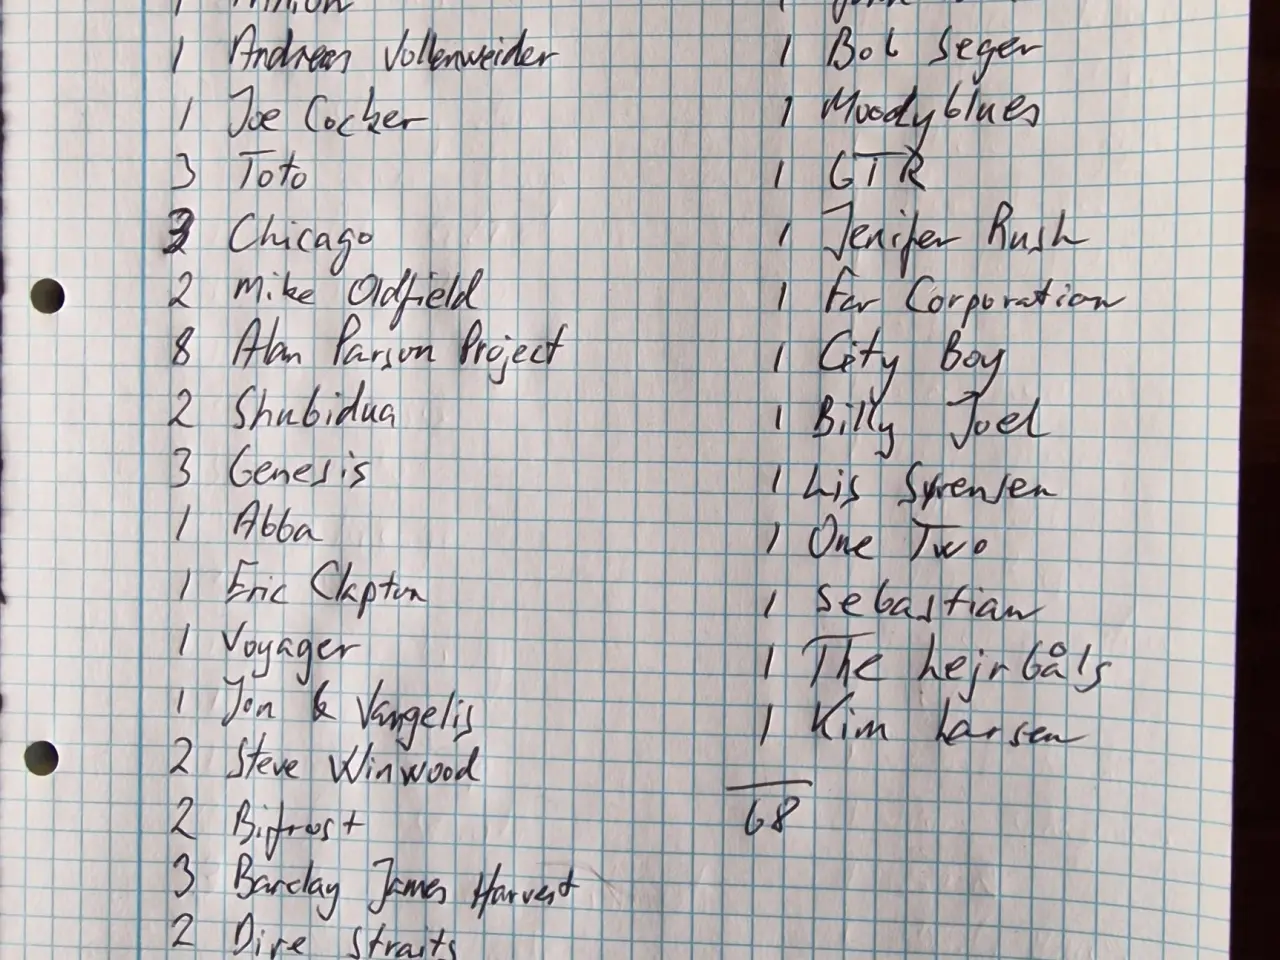 1 Andreas Vollenweider
1 Joe Cocker
3 Toto
3 Chicago
2 Mike Oldfield
8 Alan Parson Project
2 Shubidua
3 Genesis
1 Abba
1 Eric Clapton
1 Voyager
1 Jon & Vangelis
2 Steve Winwood
2 Bifrost
3 Barclay James Harvest
2 Dire Straits
1 Bob Seger
1 Moodyblues
1 GTR
1 Jenifer Rush
1 Far Corporation
1 City Boy
1 Billy Joel
1 Lis Sørensen
1 One Two
1 Sebastian
1 The hejrGåls
1 Kim Larsen
68